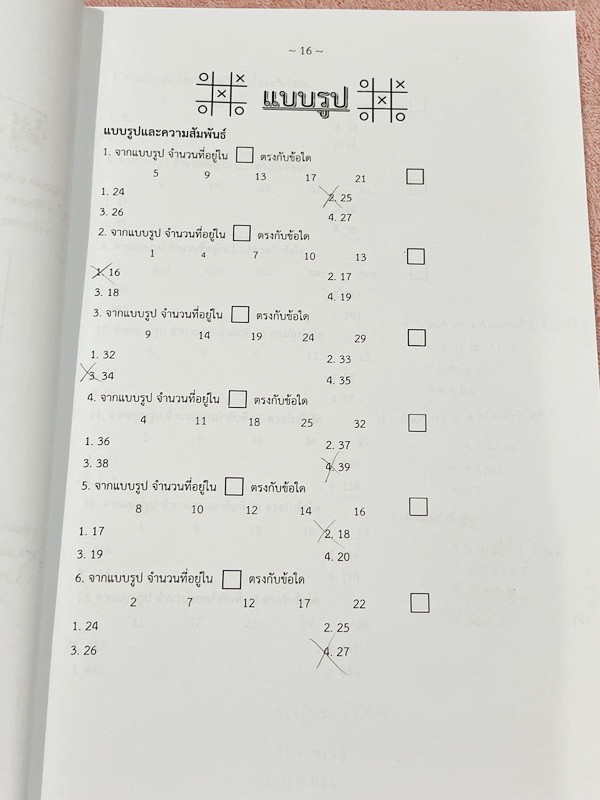 ~ 16 ~
แบบรูป
แบบรูปและความสัมพันธ์
1. จากแบบรูป จำนวนที่อยู่ใน ตรงกับข้อใด
5 9 13 17 21
1. 24 2. 25
3. 26 4. 27
2. จากแบบรูป จำนวนที่อยู่ใน ตรงกับข้อใด
1 4 7 10 13
1. 16 2. 17
3. 18 4. 19
3. จากแบบรูป จำนวนที่อยู่ใน ตรงกับข้อใด
9 14 19 24 29
1. 32 2. 33
3. 34 4. 35
4. จากแบบรูป จำนวนที่อยู่ใน ตรงกับข้อใด
4 11 18 25 32
1. 36 2. 37
3. 38 4. 39
5. จากแบบรูป จำนวนที่อยู่ใน ตรงกับข้อใด
8 10 12 14 16
1. 17 2. 18
3. 19 4. 20
6. จากแบบรูป จำนวนที่อยู่ใน ตรงกับข้อใด
2 7 12 17 22
1. 24 2. 25
3. 26 4. 27